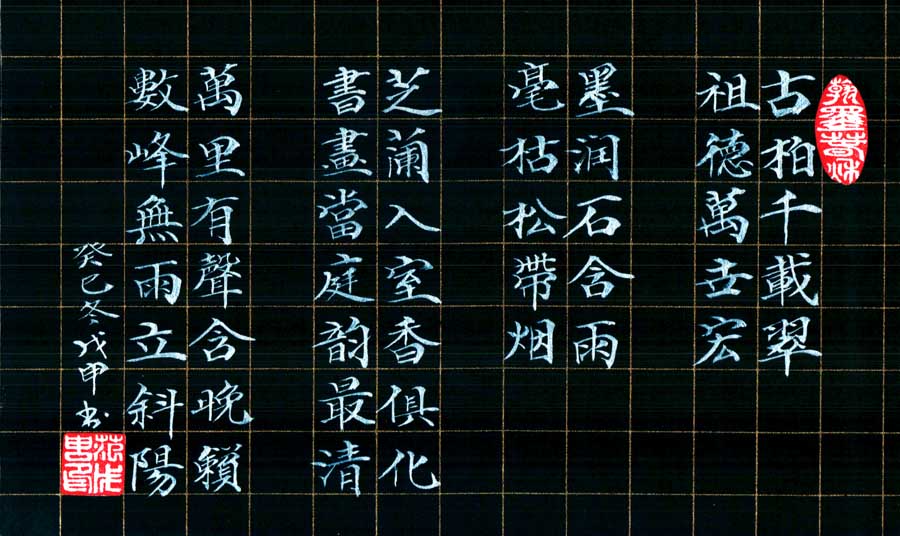 古柏千載翠
祖德萬世宏
墨润石含雨
毫枯松帶烟
芝蘭入室香俱化
書畫當庭韵最清
萬里有聲含晚賴
數峰無雨立斜陽
癸巳冬戊甲书